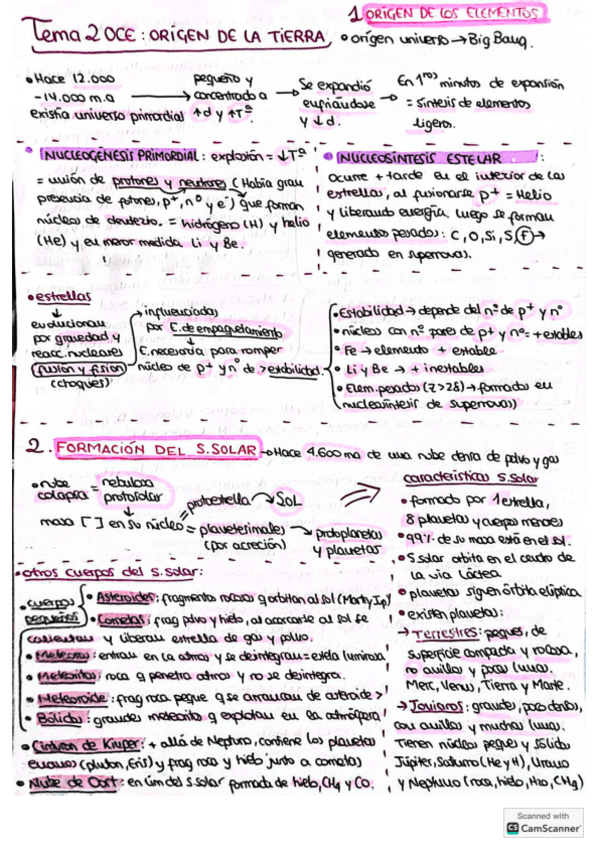 Tema 2 OCE: ORIGEN DE LA TIERRA
1 ORIGEN DE LOS ELEMENTOS
• origen universo → Big Bang.
• Hace 12.000
-14.000 m.a
existía universo primordial
pequeño y
concentrado a
↑d y ↑Tª
Se expandió
enfriándose
y ↓d.
En 1ros minutos de expansión
= síntesis de elementos
ligeros.
• NUCLEOGÉNESIS PRIMORDIAL: explosión = ↓Tª
= unión de protones y neutrones (Había gran
presencia de fotones, p+, nº y e-) que forman
núcleos de deuterio. = hidrógeno (H) y helio
(He) y en menor medida Li y Be.
• NUCLEOSÍNTESIS ESTELAR:
ocurre + tarde en el interior de las
estrellas, al fusionarse p+ = Helio
y liberando energía, luego se forman
elementos pesados: C, O, Si, S, (F) →
generado en supernovas).
• estrellas
evolucionan
por gravedad y
reacc. nucleares
(fusión y fisión)
(choques)
→ influenciados
por E. de empaquetamiento
E. necesaria para romper
núcleo de p+ y nº de > estabilidad.
• Estabilidad → depende del nº de p+ y nº
• núcleo con nº pares de p+ y nº = + estables
• Fe → elemento + estable
• Li y Be → + inestables
• Elem. pesados (Z>28) → formados en
nucleosíntesis de supernovas))
2. FORMACIÓN DEL S. SOLAR → Hace 4.600 ma de una nube densa de polvo y gas
• nube
colapsa = nebulosa
protosolar
masa [ ] en su núcleo
protoestrella → Sol
= planetesimales
(por acreción)
→ protoplanetas
y planetas
características S. solar
• formado por 1 estrella,
8 planetas y cuerpos menores
• 99% de su masa está en el sol.
• S. solar orbita en el centro de
la vía Láctea
• planetas siguen órbita elíptica
• existen planetas:
→ Terrestres: peques, de
superficie compacta y rocosa,
no anillos y pocas lunas.
Merc, Venus, Tierra y Marte.
→ Jovianos: grandes, poco densos,
con anillos y muchas lunas.
Tienen núcleos peques y sólidos
Júpiter, Saturno (He y H), Urano
y Neptuno (roca, hielo, H2O, CH4)
• otros cuerpos del S. solar:
• cuerpos
pequeños
• Asteroides: fragmento rocoso q orbitan al sol (Mart y Jp)
• Cometas: frag polvo y hielo, al acercarse al sol se
calientan y liberan estrella de gas y polvo.
• Meteoros: entran en la atmos y se desintegran = estela luminosa
• Meteoritos: roca q penetra atmos y no se desintegra.
• Meteoroide: frag roca peque q se arrancan de asteroide >
• Bólidos: grandes meteorito q explotan en la atmósfera
• Cinturón de Kuiper: + allá de Neptuno, contiene los planetas
enanos (pluton, Eris) y frag roca y hielo junto a cometas
• Nube de Oort: en lím del s. solar formada de hielo, CH4 y CO.
Scanned with
CS CamScanner